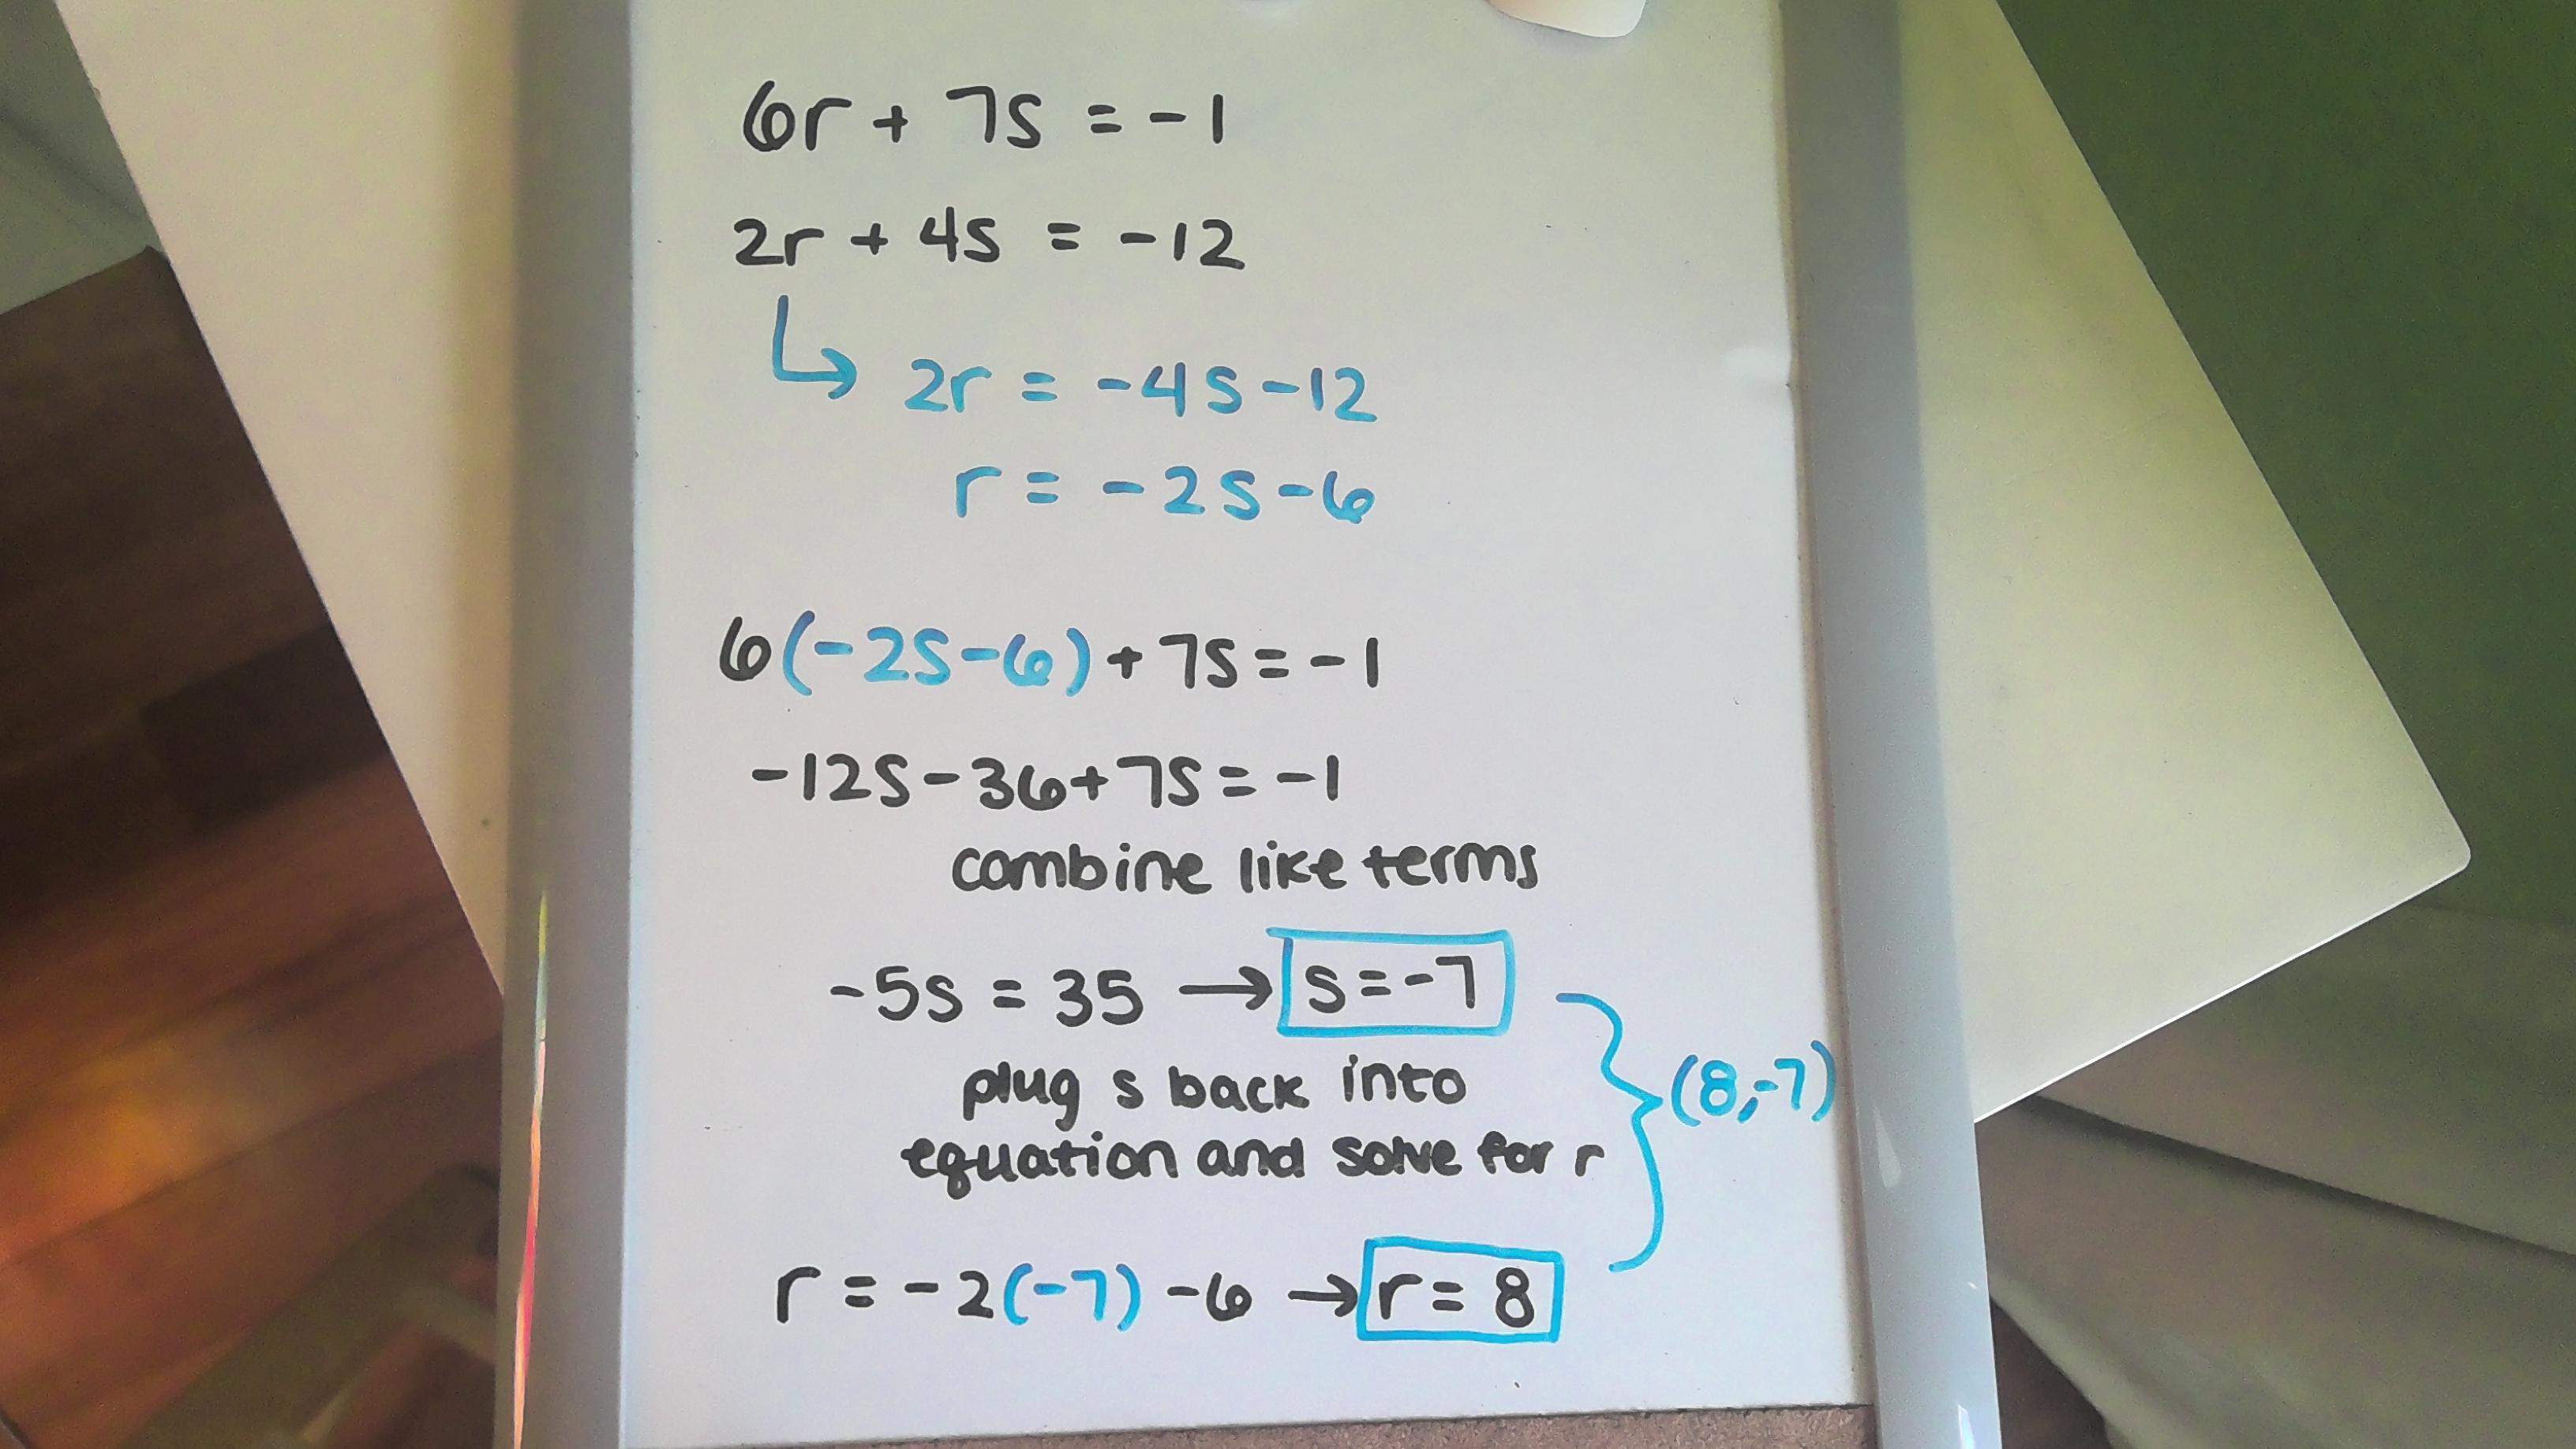 6r + 7s = -1
2r + 4s = -12
↳ 2r = -4s - 12
r = -2s - 6
6(-2s - 6) + 7s = -1
-12s - 36 + 7s = -1
combine like terms
-5s = 35 → s = -7
plug s back into
equation and solve for r
(8, -7)
r = -2(-7) - 6 → r = 8